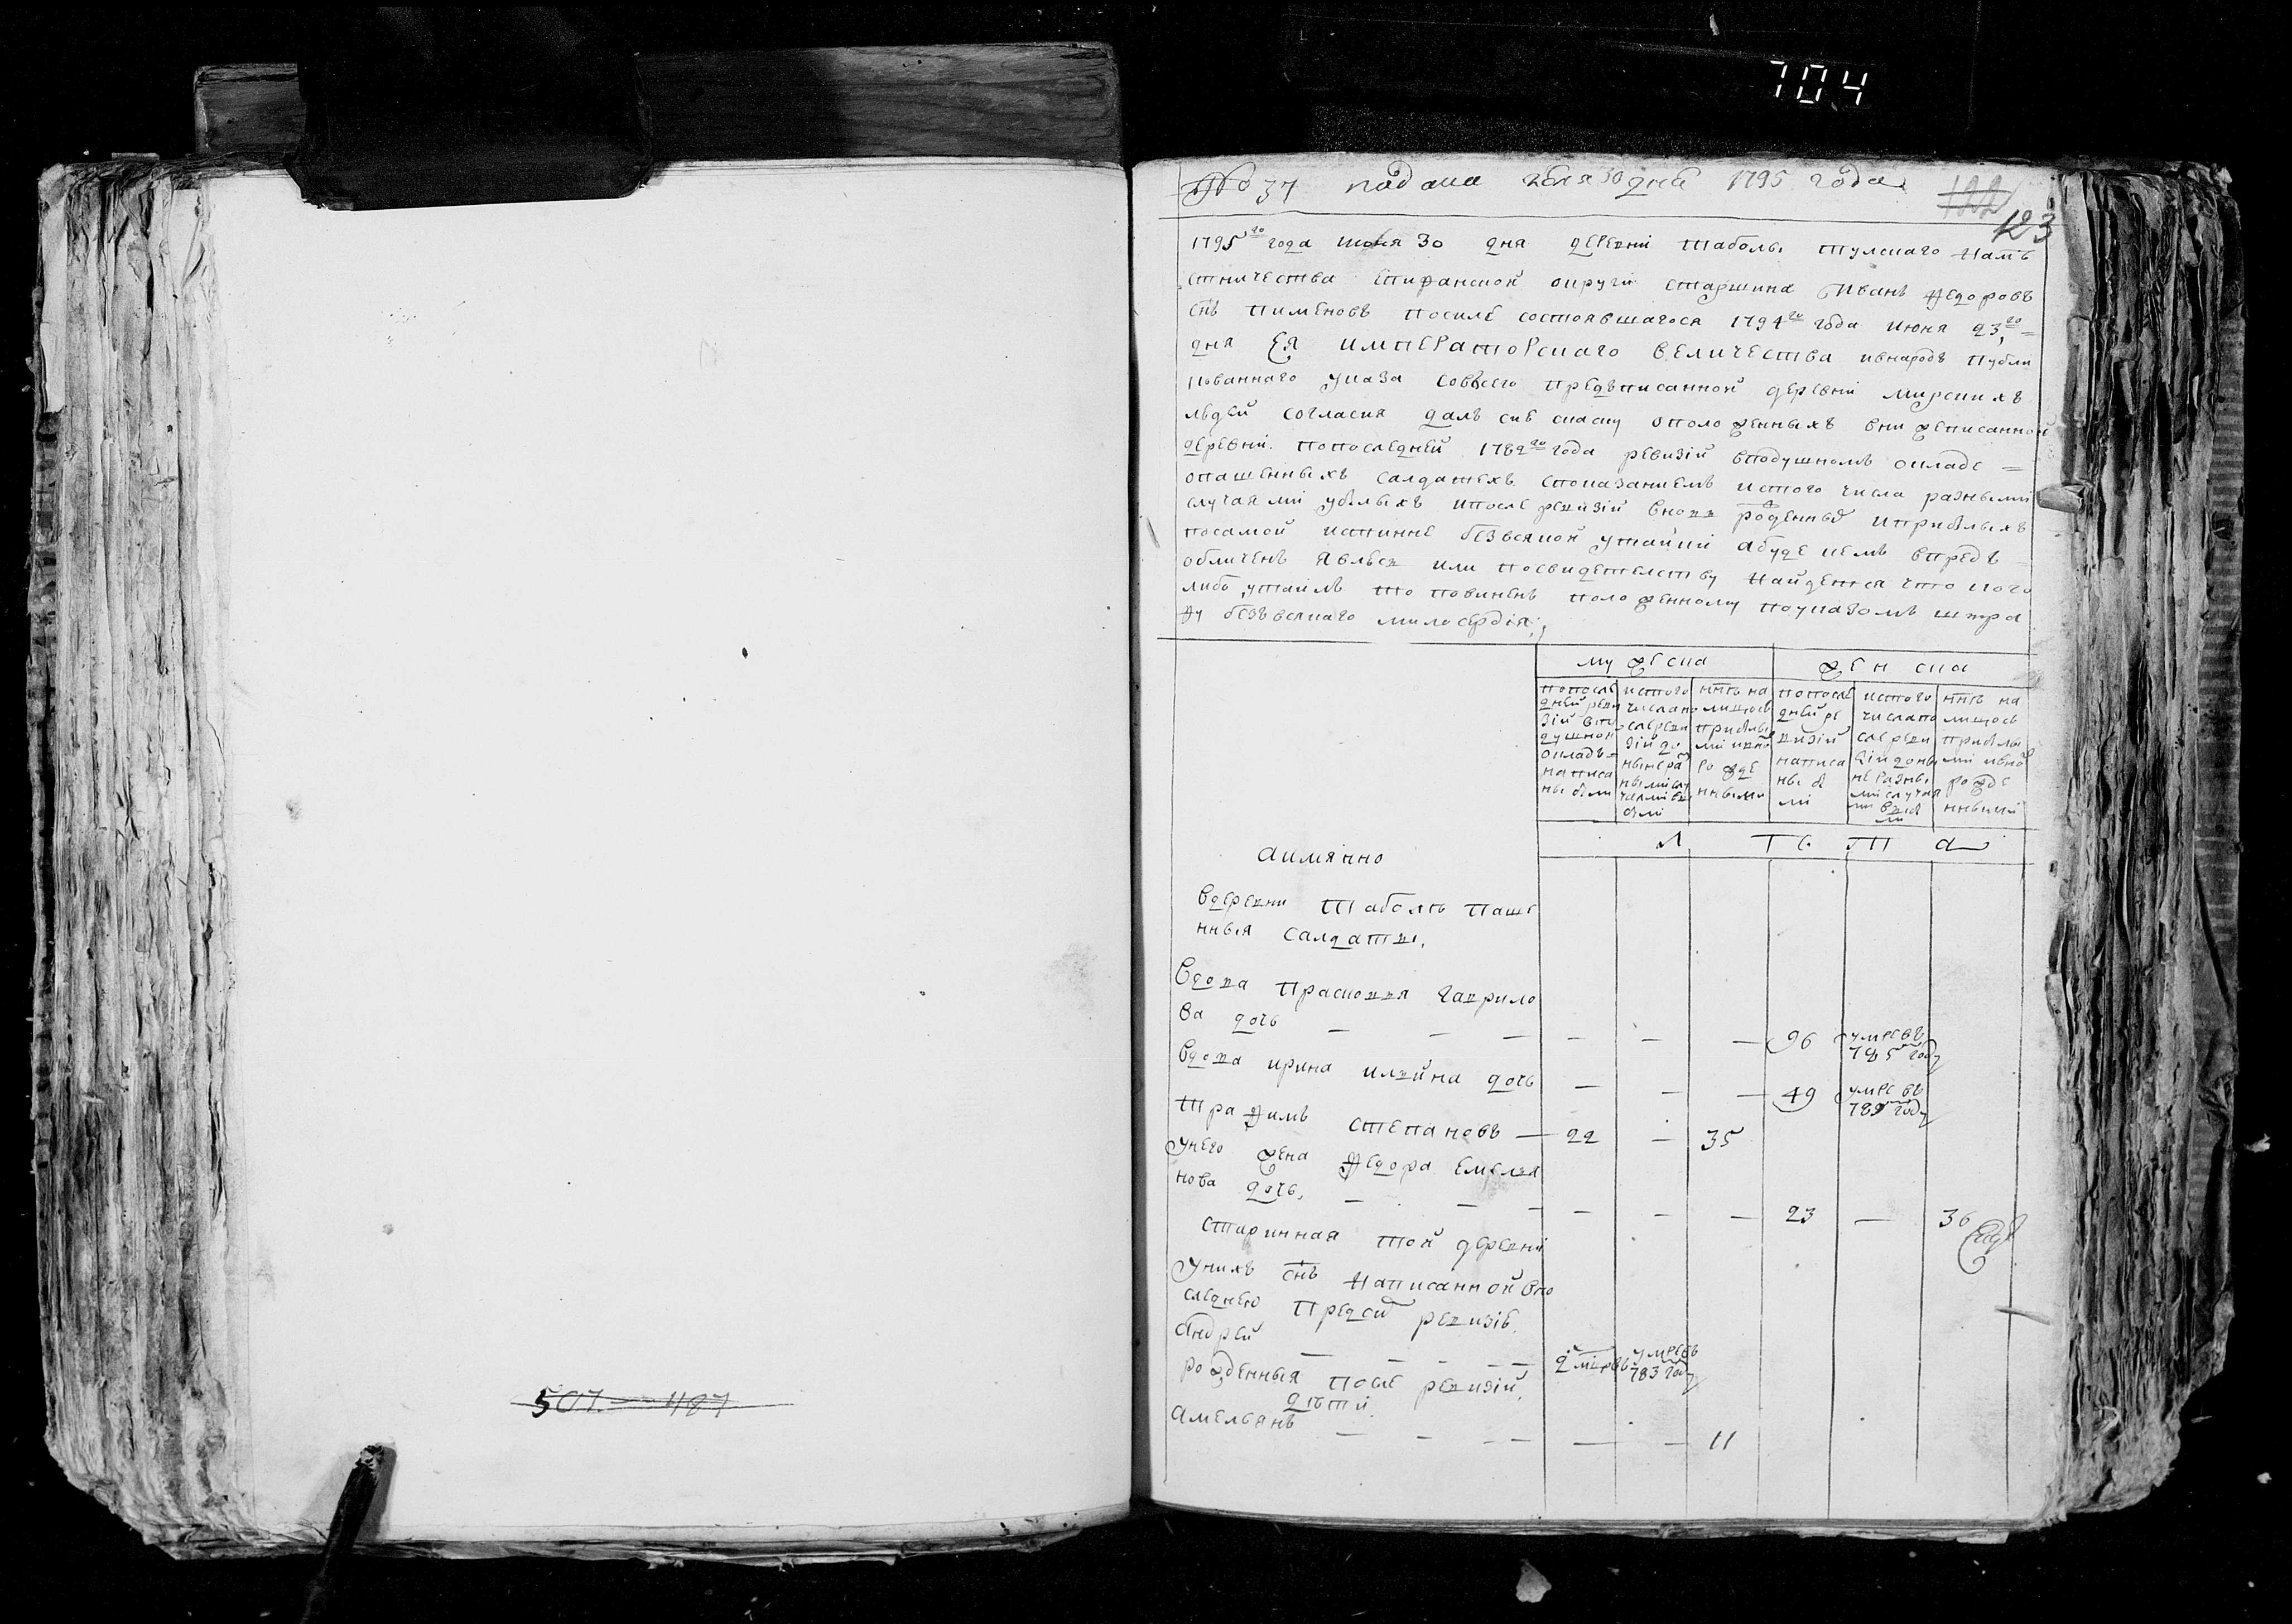 704
507 — 487
№ 37 подана июля 30 дня 1795 года
122
123
1795го года июля 30 дня деревни Таболы Тулскаго намѣ
стничества Епифанской округи старшина Иванъ Федоровъ
снъ Пименовъ посиле состоявшагося 1794го года июня 23го
дня Ея Императорскаго величества ивнародъ публи
кованнаго указа совсего предъписанной деревни мирскихъ
людей согласия далъ сие скаску оположенныхъ вни жеписанной
деревни. попоследней 1782го года ревизіи вподушномъ окладе
опашенныхъ салдатехъ споказаниемъ истого числа разными
случаями убылыхъ ипосле ревизіи вновь рожденные иприбылыхъ
посамой истинне безвсякой утайки абуде кемъ впредъ
обличенъ явлюсь или посвидетелству найдется что кого
либо утаилъ то повиненъ положенному поуказомъ штра
фу безъвсякаго милосердія;
мужеска
женска
попосле
дней реви
зій впо
душной
окладъ
написа
ны были
истого
числапо
слереви
зій до
ныне ра
зными слу
чаями вы
были
ннѣ на
лицось
прибылы
ми ивно
рожде
нными
попосле
дней ре
визій
написа
ны бы
ли
истого
числапо
слереви
зій доны
не разны
ми случая
ми выбы
ли
ннѣ на
лицось
прибылы
ми ивно
рожде
нными
Л ѣ т а
аимянно
вдеревни Таболѣ паше
нныя салдаты.
Вдова Прасковья Гаврило
ва дочь — — — — — — 96 умре въ 785 году
Вдова Ирина Илйина дочь — — — 49 умре въ 789 году
Трафимъ Степановъ — 22 — 35
Унего жена Федора Емелья
нова дочь, — — — — — — 23 — 36
старинная той деревни
Унихъ снъ написанной впо
следнею предсию ревизіе.
Андрей — — — — 2 мцовъ умре въ 783 году
рожденныя после ревизій
дѣти
Амельянъ — — — — — — 11